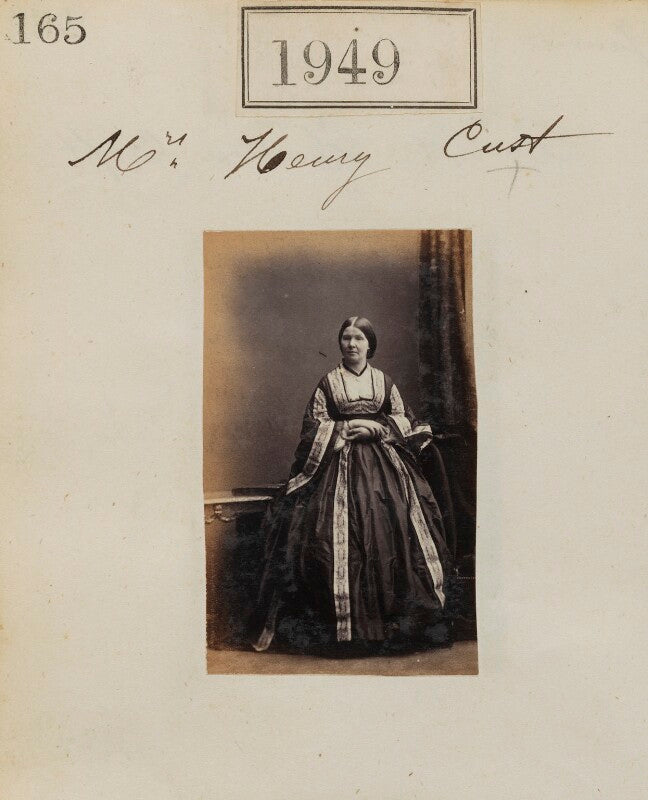 165
1949
Mrs Henry Cust